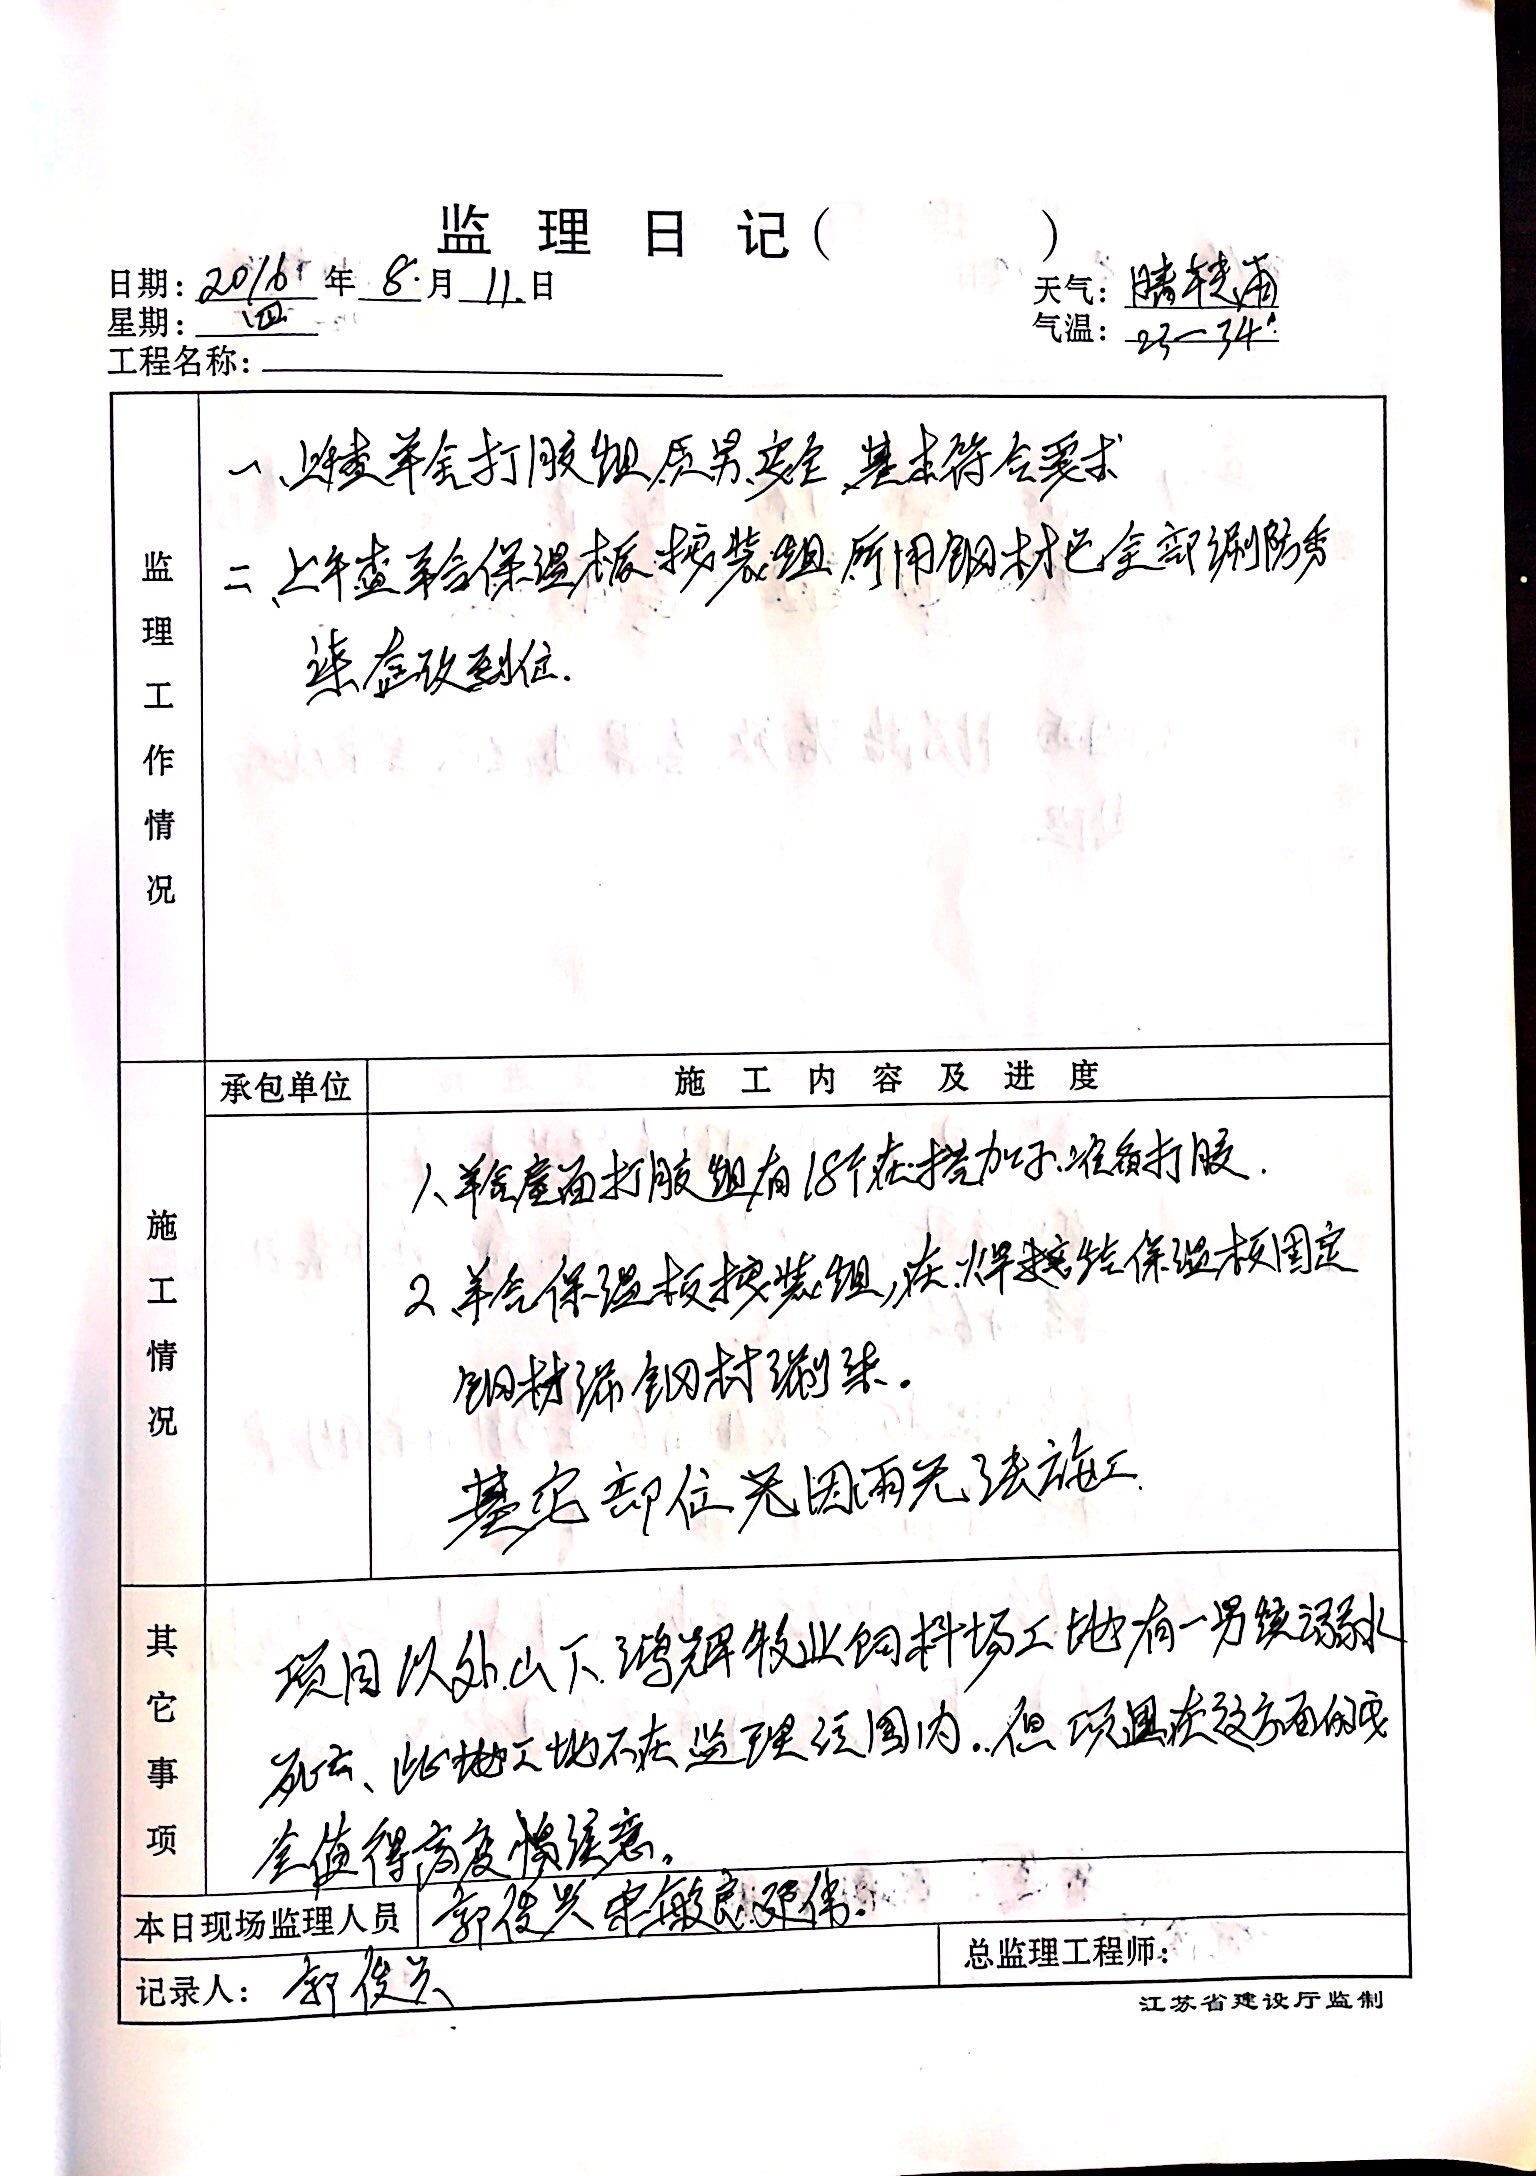 监理日记（ ）
日期：2016年8月11日
天气：晴转
星期：四
气温：23—34°
工程名称：
监理工作情况
一、上午查羊舍打胶组质另、安全、基本符合要求
二、上午查羊舍保温板按装组所用钢材已全部刷防
漆 改到位.
承包单位
施工内容及进度
施工情况
1、羊舍屋面打胶组有18个在搭加子.准备打胶.
2、羊舍保温板按装组,在焊接结保温板固定
钢材 钢材刷漆。
其它部位无因雨无法施工.
其它事项
项目以外.山下.鸿辉牧业饲料场工地有一男孩溺水
死亡、此地工地不在监理范围内..但项目在这方面的安
全值得高度 注意。
本日现场监理人员
郭俊兴 宋敏良 邓伟.
记录人：郭俊兴
总监理工程师：
江苏省建设厅监制